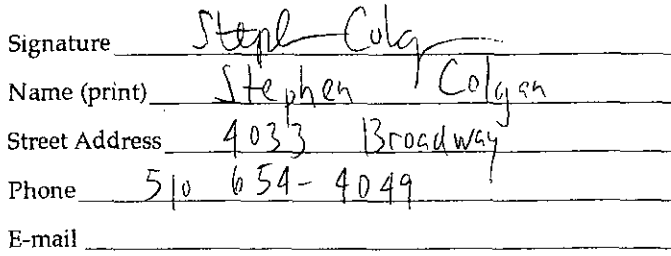 Signature Steph Colg
Name (print) Stephen Colgan
Street Address 4033 Broadway
Phone 510 654-4049
E-mail